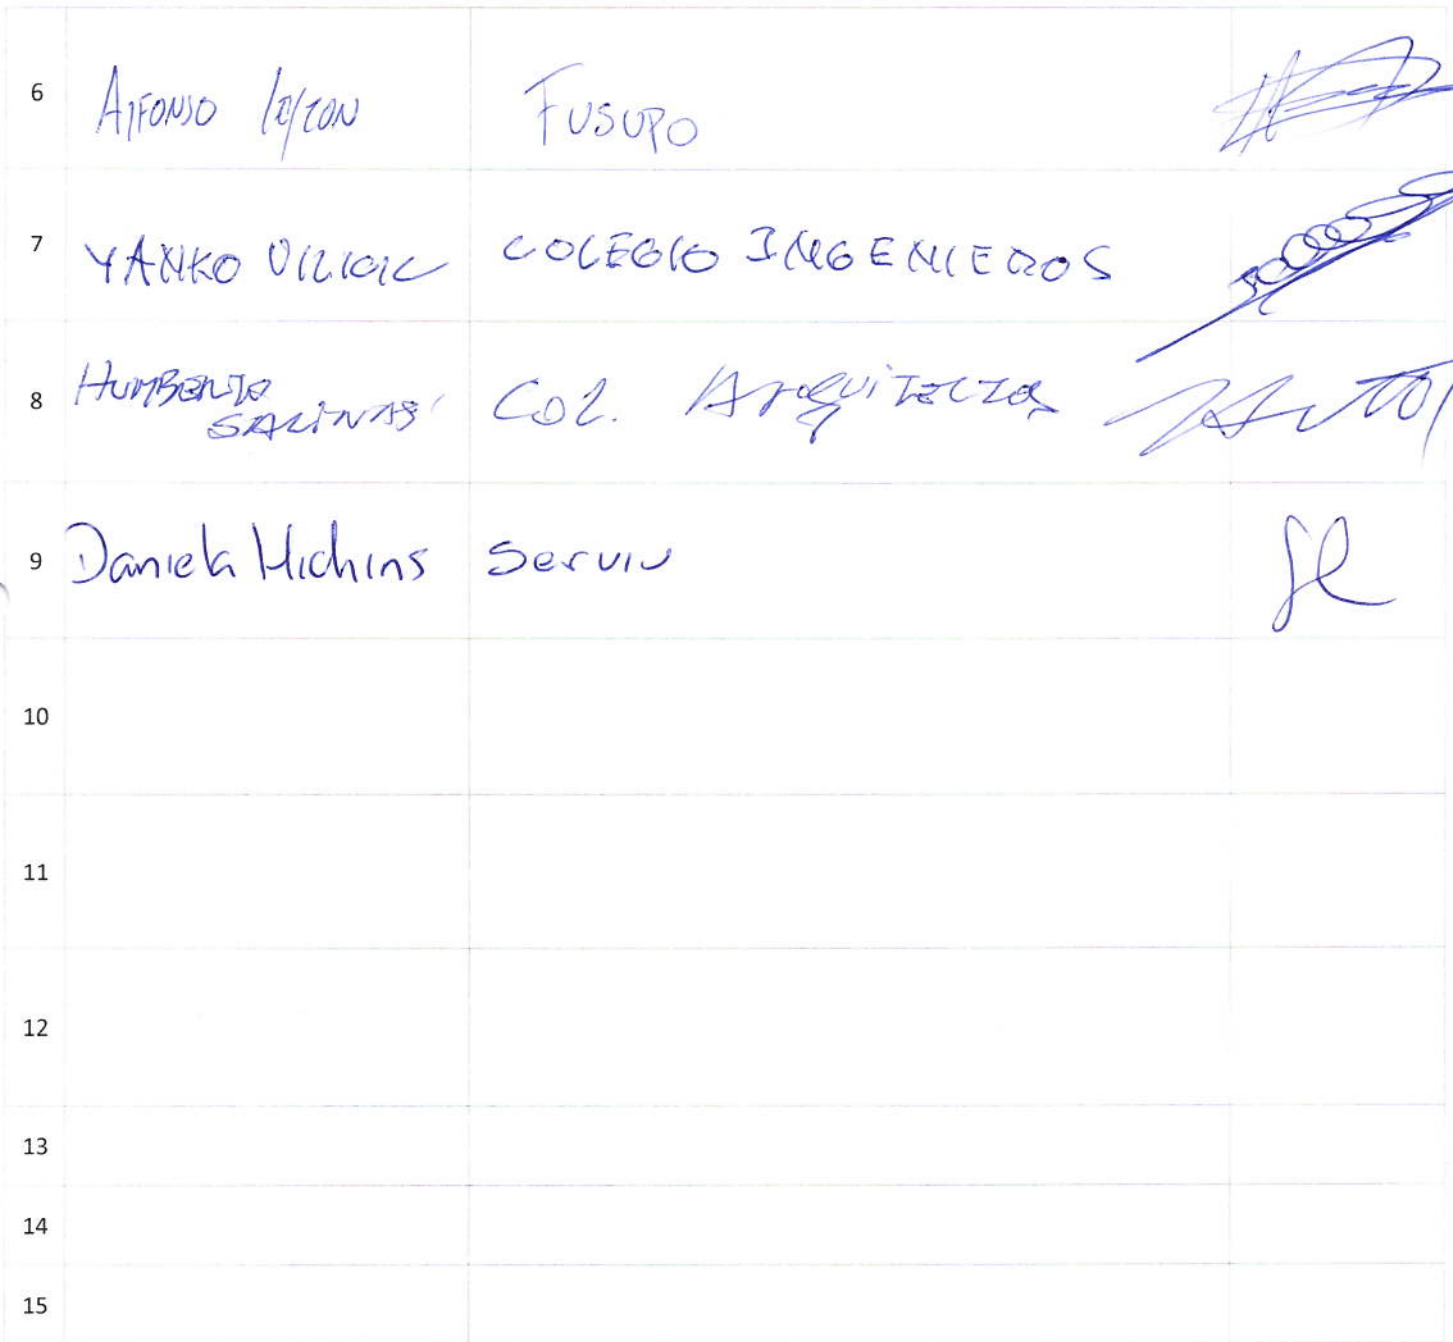 6 Alfonso FUSUPO
7 YANKO VILICIC COLEGIO INGENIEROS
8 HUMBERTO SALINAS Col. Arquitectos
9 Daniela Hichins Serviu
10
11
12
13
14
15